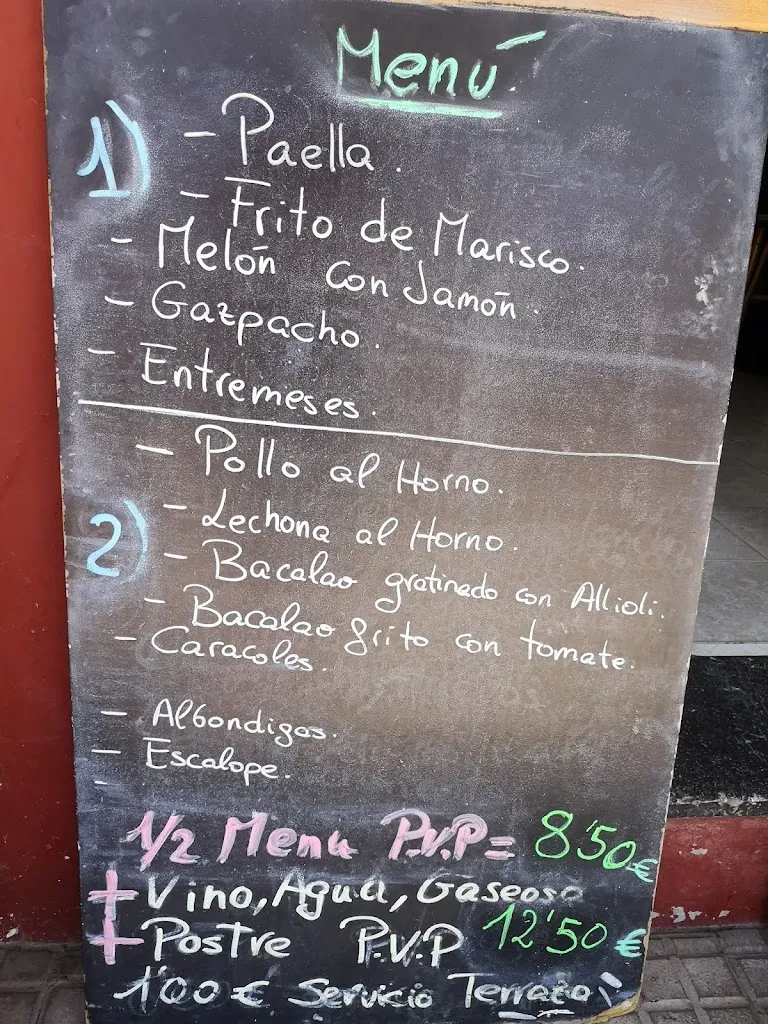 Menú
1) - Paella.
- Frito de Marisco.
- Melón con Jamón.
- Gazpacho.
- Entremeses.
- Pollo al Horno.
2) - Lechona al Horno.
- Bacalao gratinado con Allioli.
- Bacalao frito con tomate.
- Caracoles.
- Albondigas.
- Escalope.
-
1/2 Menu P.V.P = 8'50 €
+ Vino, Agua, Gaseosa
+ Postre P.V.P 12'50 €
1'00 € Servicio Terraza